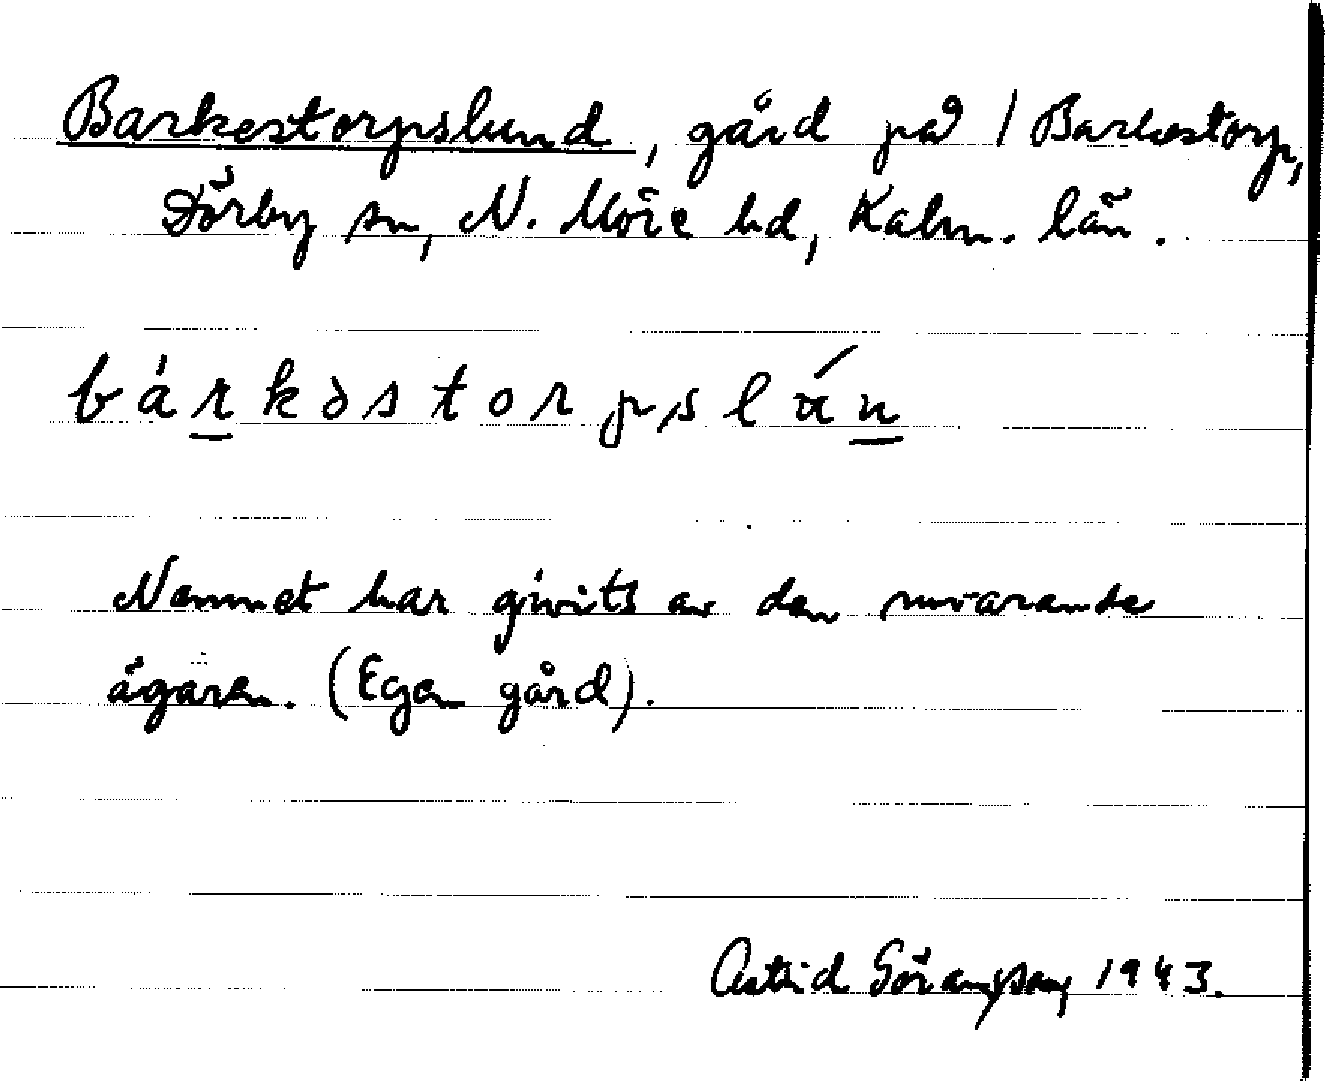 Barkestorpslund, gård på 1 Barkestorp,
Dörby sn, N. Möre hd, Kalm. län.
bárkəstorpslán
Namnet har givits av den nuvarande
ägaren. (Egen gård).
Astrid Göransson, 1943.